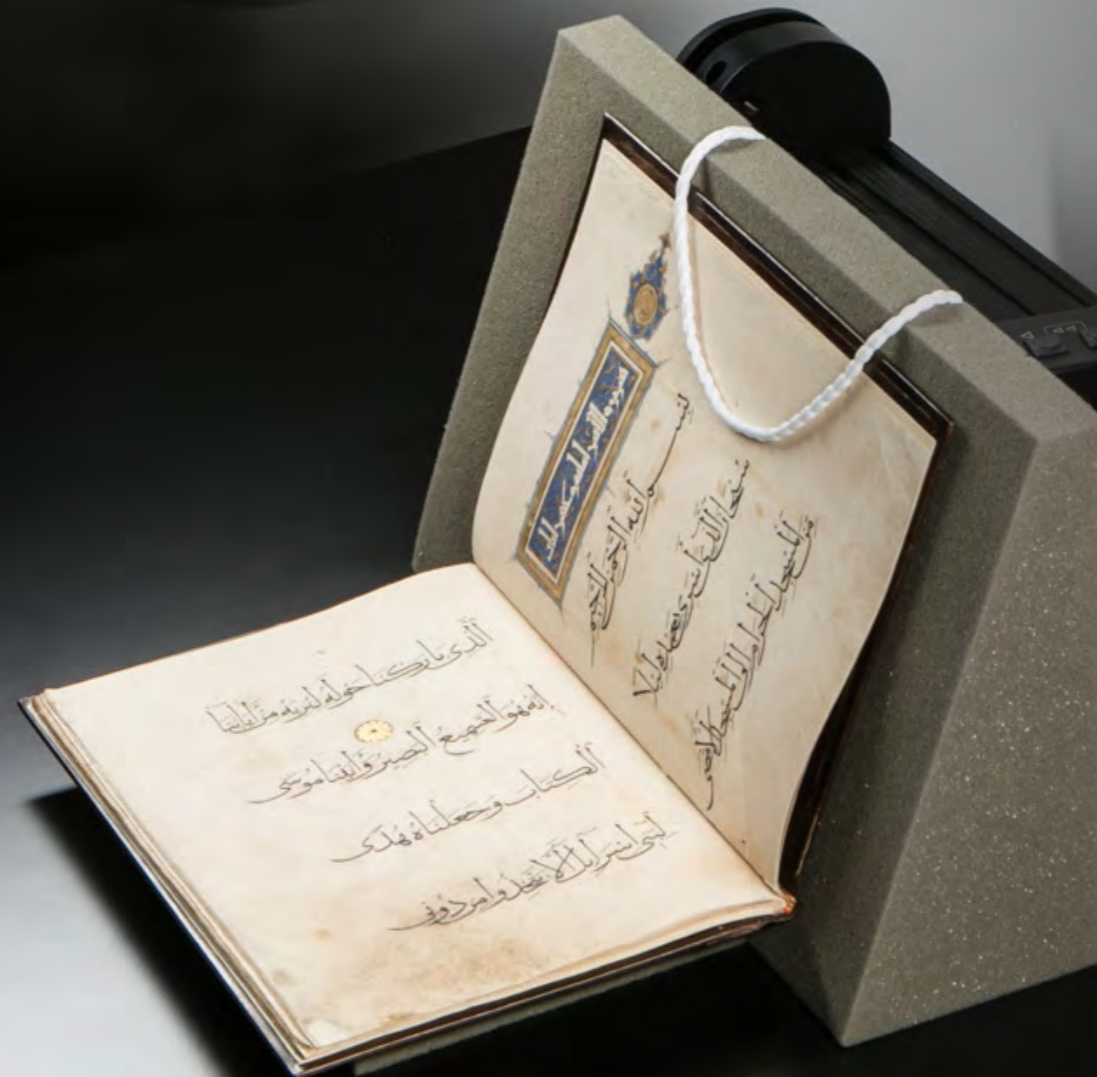 بسم الله الرحمن الرحيم
سبحان الذي أسرى بعبده ليلا
من المسجد الحرام إلى المسجد الأقصى
الذي باركنا حوله لنريه من اياتنا
إنه هو السميع البصير واتينا موسى
الكتاب وجعلناه هدى
لبني اسرايل ألا تتخذوا من دوني